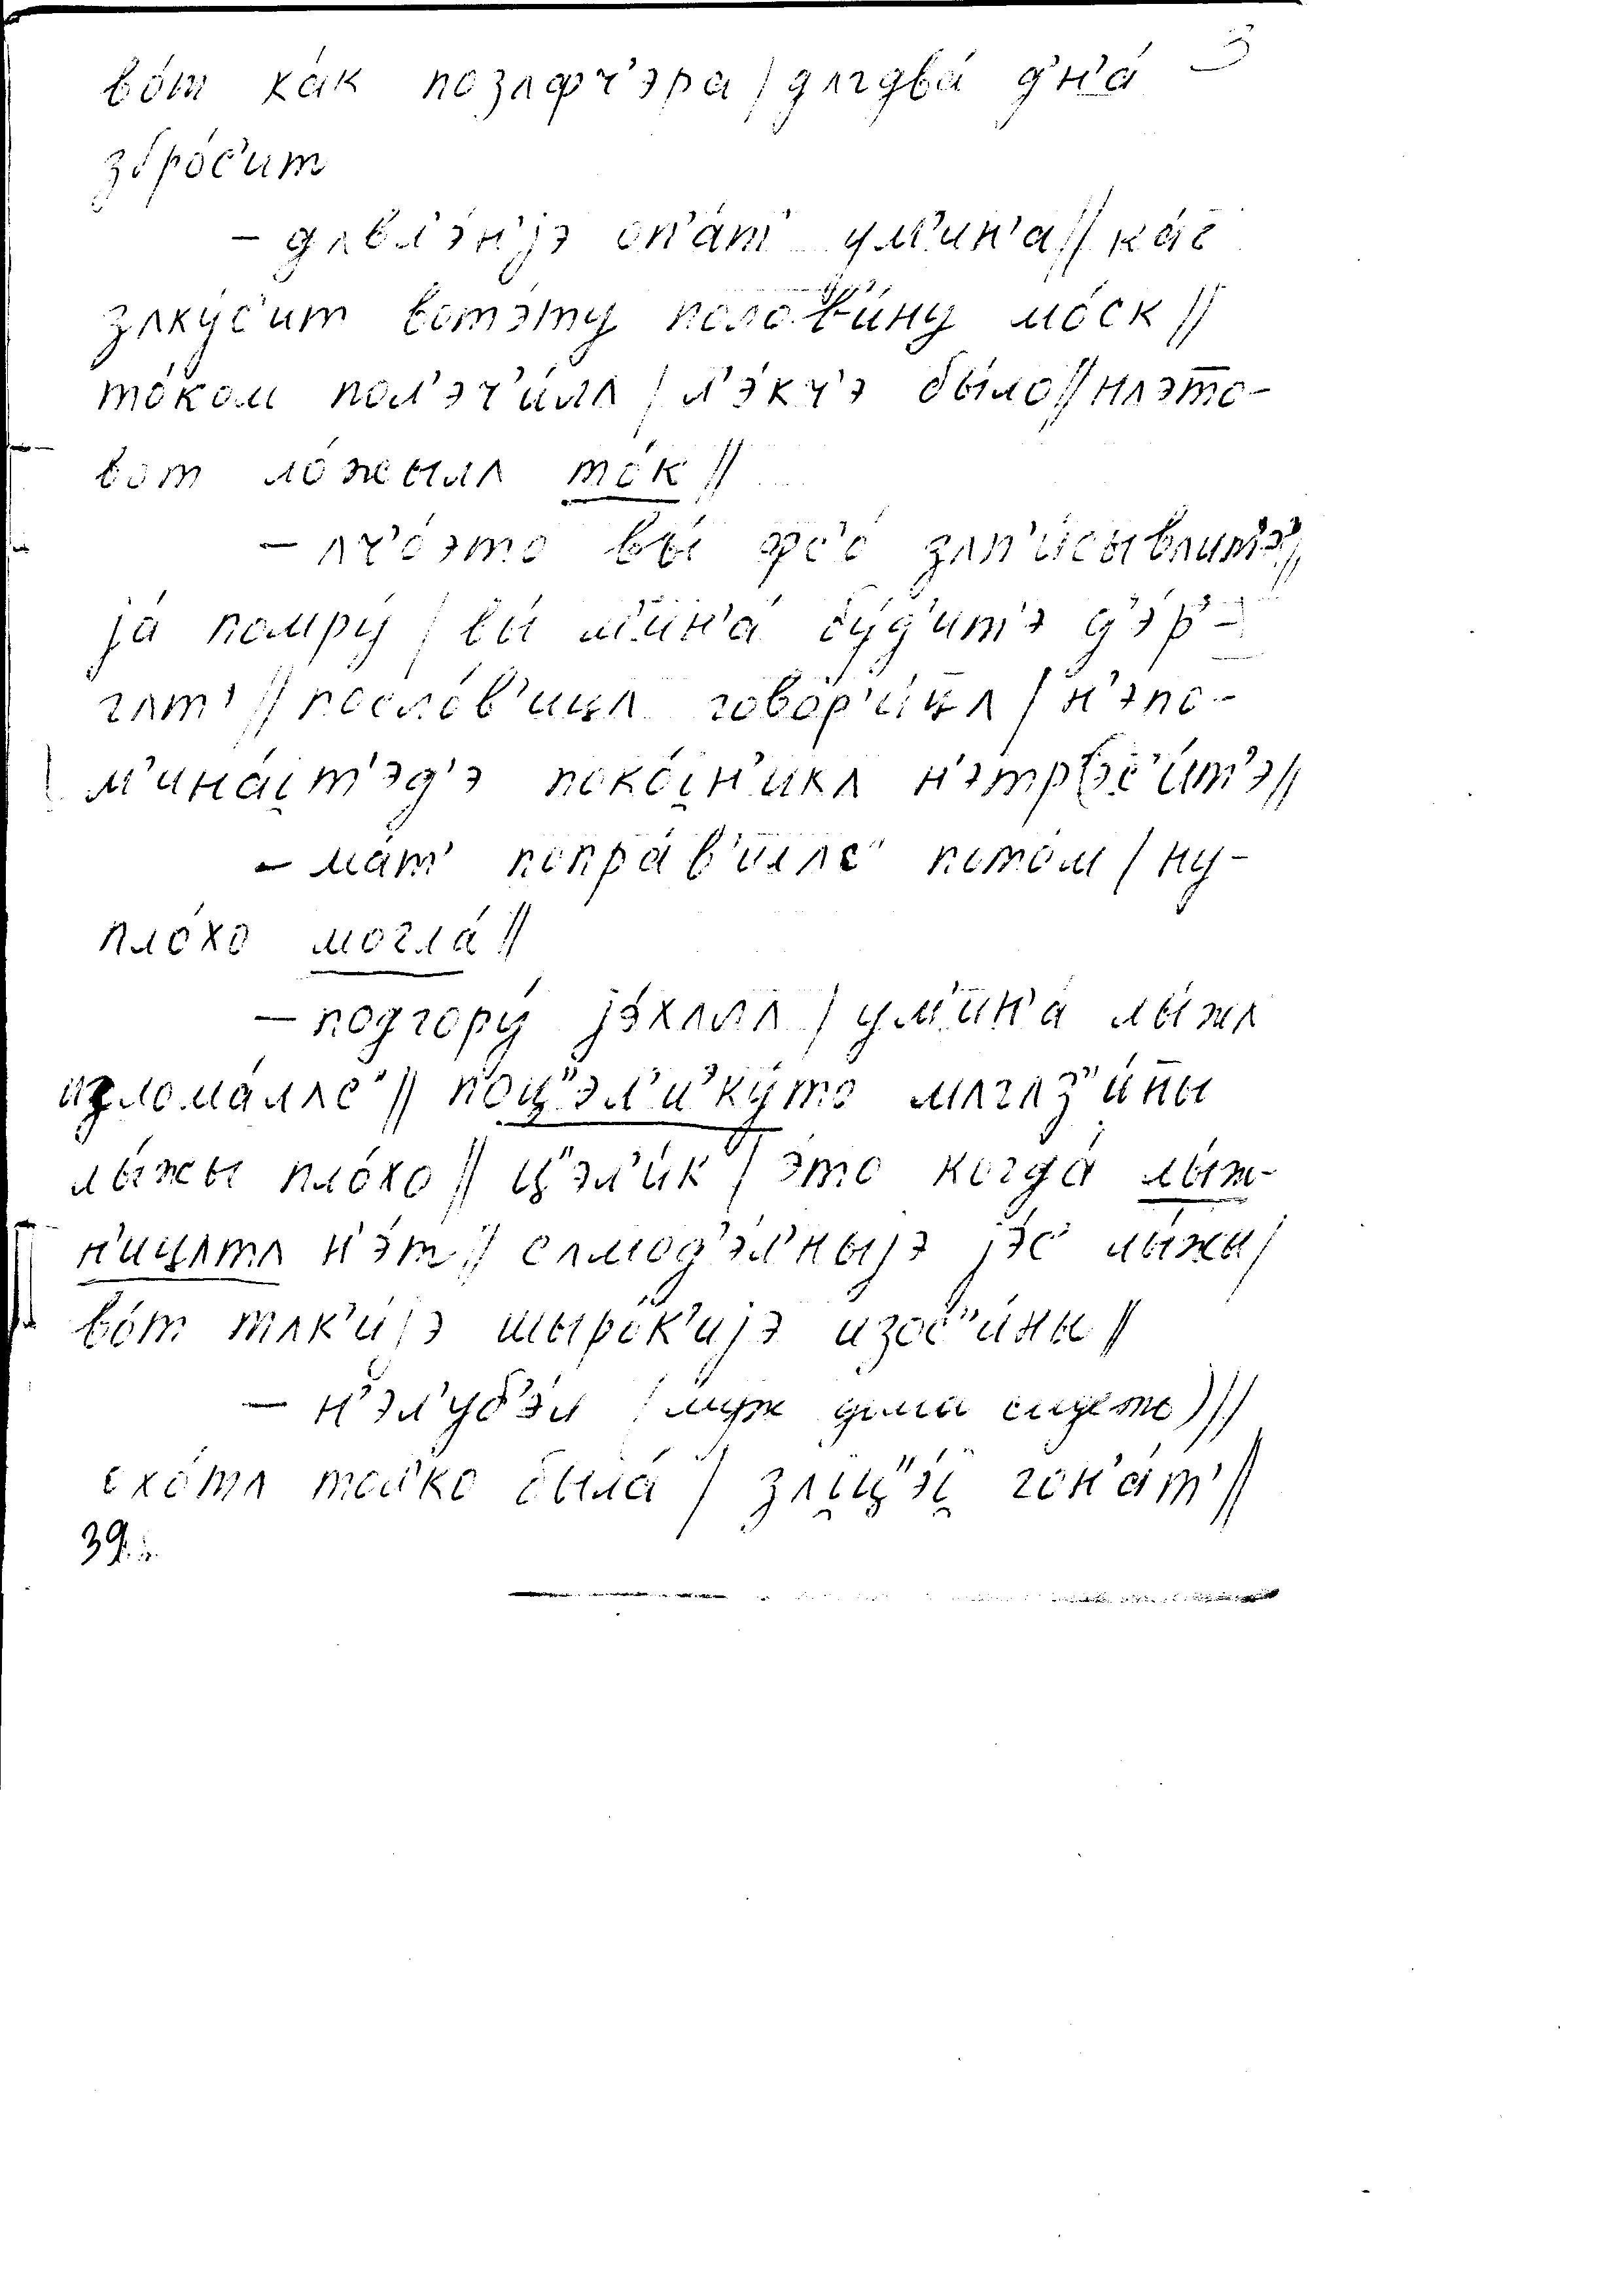 3
во́т ка́к позʌфч'эра / дʌгдва́ д'н'а́
збро́с'ит
– дʌвл'э́н'jэ оп'а́т' ум'ин'а // ка́г
зʌку́с'ит вотэ́ту полов'и́ну мо́ск //
то́ком пол'эч'и́лʌ / л'э́кч'э бы́ло // нʌэ́то-
вот ло́жылʌ то́к //
– ʌч'о́это вы́ фс'о́ зʌп'и́сывʌит'э //
jа́ помру́ / вы́ м'ин'а́ бу́д'ит'э д'э́р'-
гʌт' // посло́в'ицʌ говор'и́цʌ / н'эпо-
м'ина́i̯т'эд'э поко́i̯н'икʌ н'этр(эс'и́т'э //
– ма́т' попра́в'илʌс' пото́м / ну-
пло́хо могла́ //
– подгору́ jэ́хʌлʌ / ум'ин'а́ лы́жʌ
изломáлʌс" // поц"эл'и'ку́то мʌгʌз"и́ны
лы́жы пло́хо // ц"эл'и́к / э́то когда́ лы́ж-
н'ицʌтʌ н'э́т // сʌмод'э́л'ныjэ jэ́с' лы́жы /
во́т тʌк'и́jэ шыро́к'иjэ изос"и́ны //
– н'эл'уб'э́л (муж дома сидеть) //
охо́тʌ то́л'ко была́ / зʌi̯ц"э́i̯ гон'а́т' //
39.